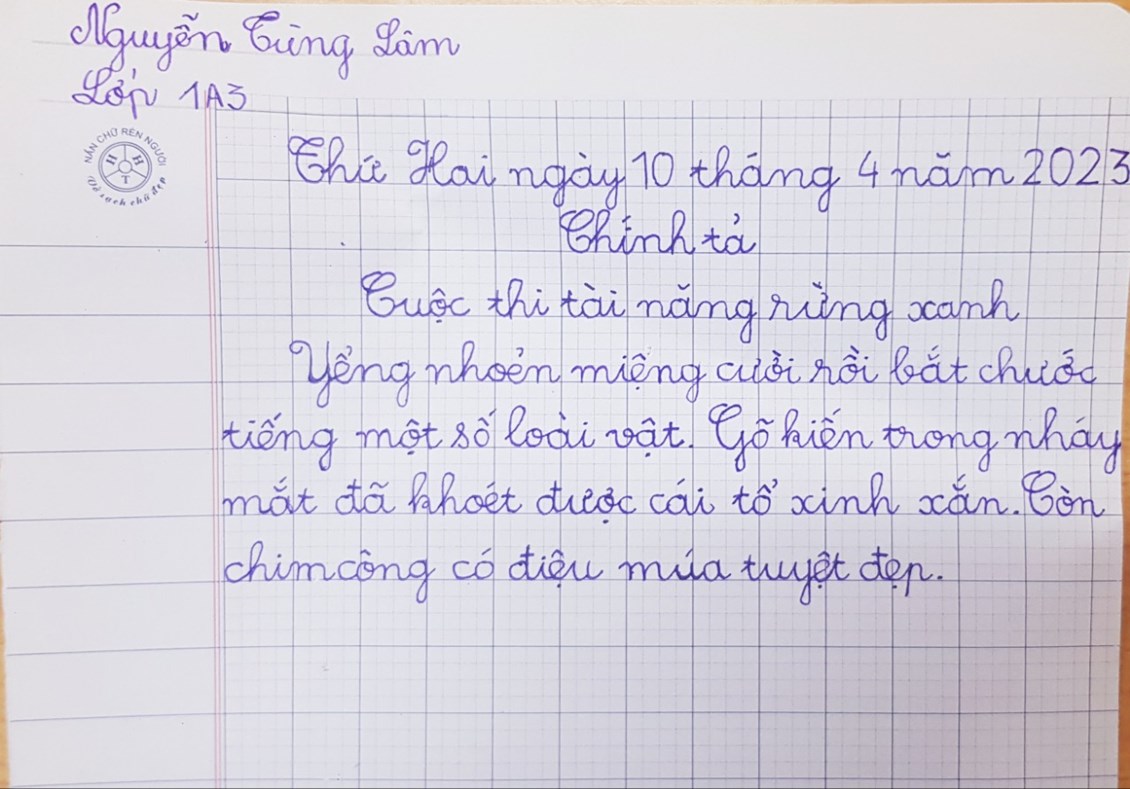 Nguyễn Tùng Lâm
Lớp 1A3
NẮN CHỮ RÈN NGƯỜI
H H T
Vở sạch chữ đẹp
Thứ Hai ngày 10 tháng 4 năm 2023
Chính tả
Cuộc thi tài năng rừng xanh
Yểng nhoẻn miệng cười rồi bắt chước
tiếng một số loài vật. Gõ kiến trong nháy
mắt đã khoét được cái tổ xinh xắn. Còn
chim công có điệu múa tuyệt đẹp.